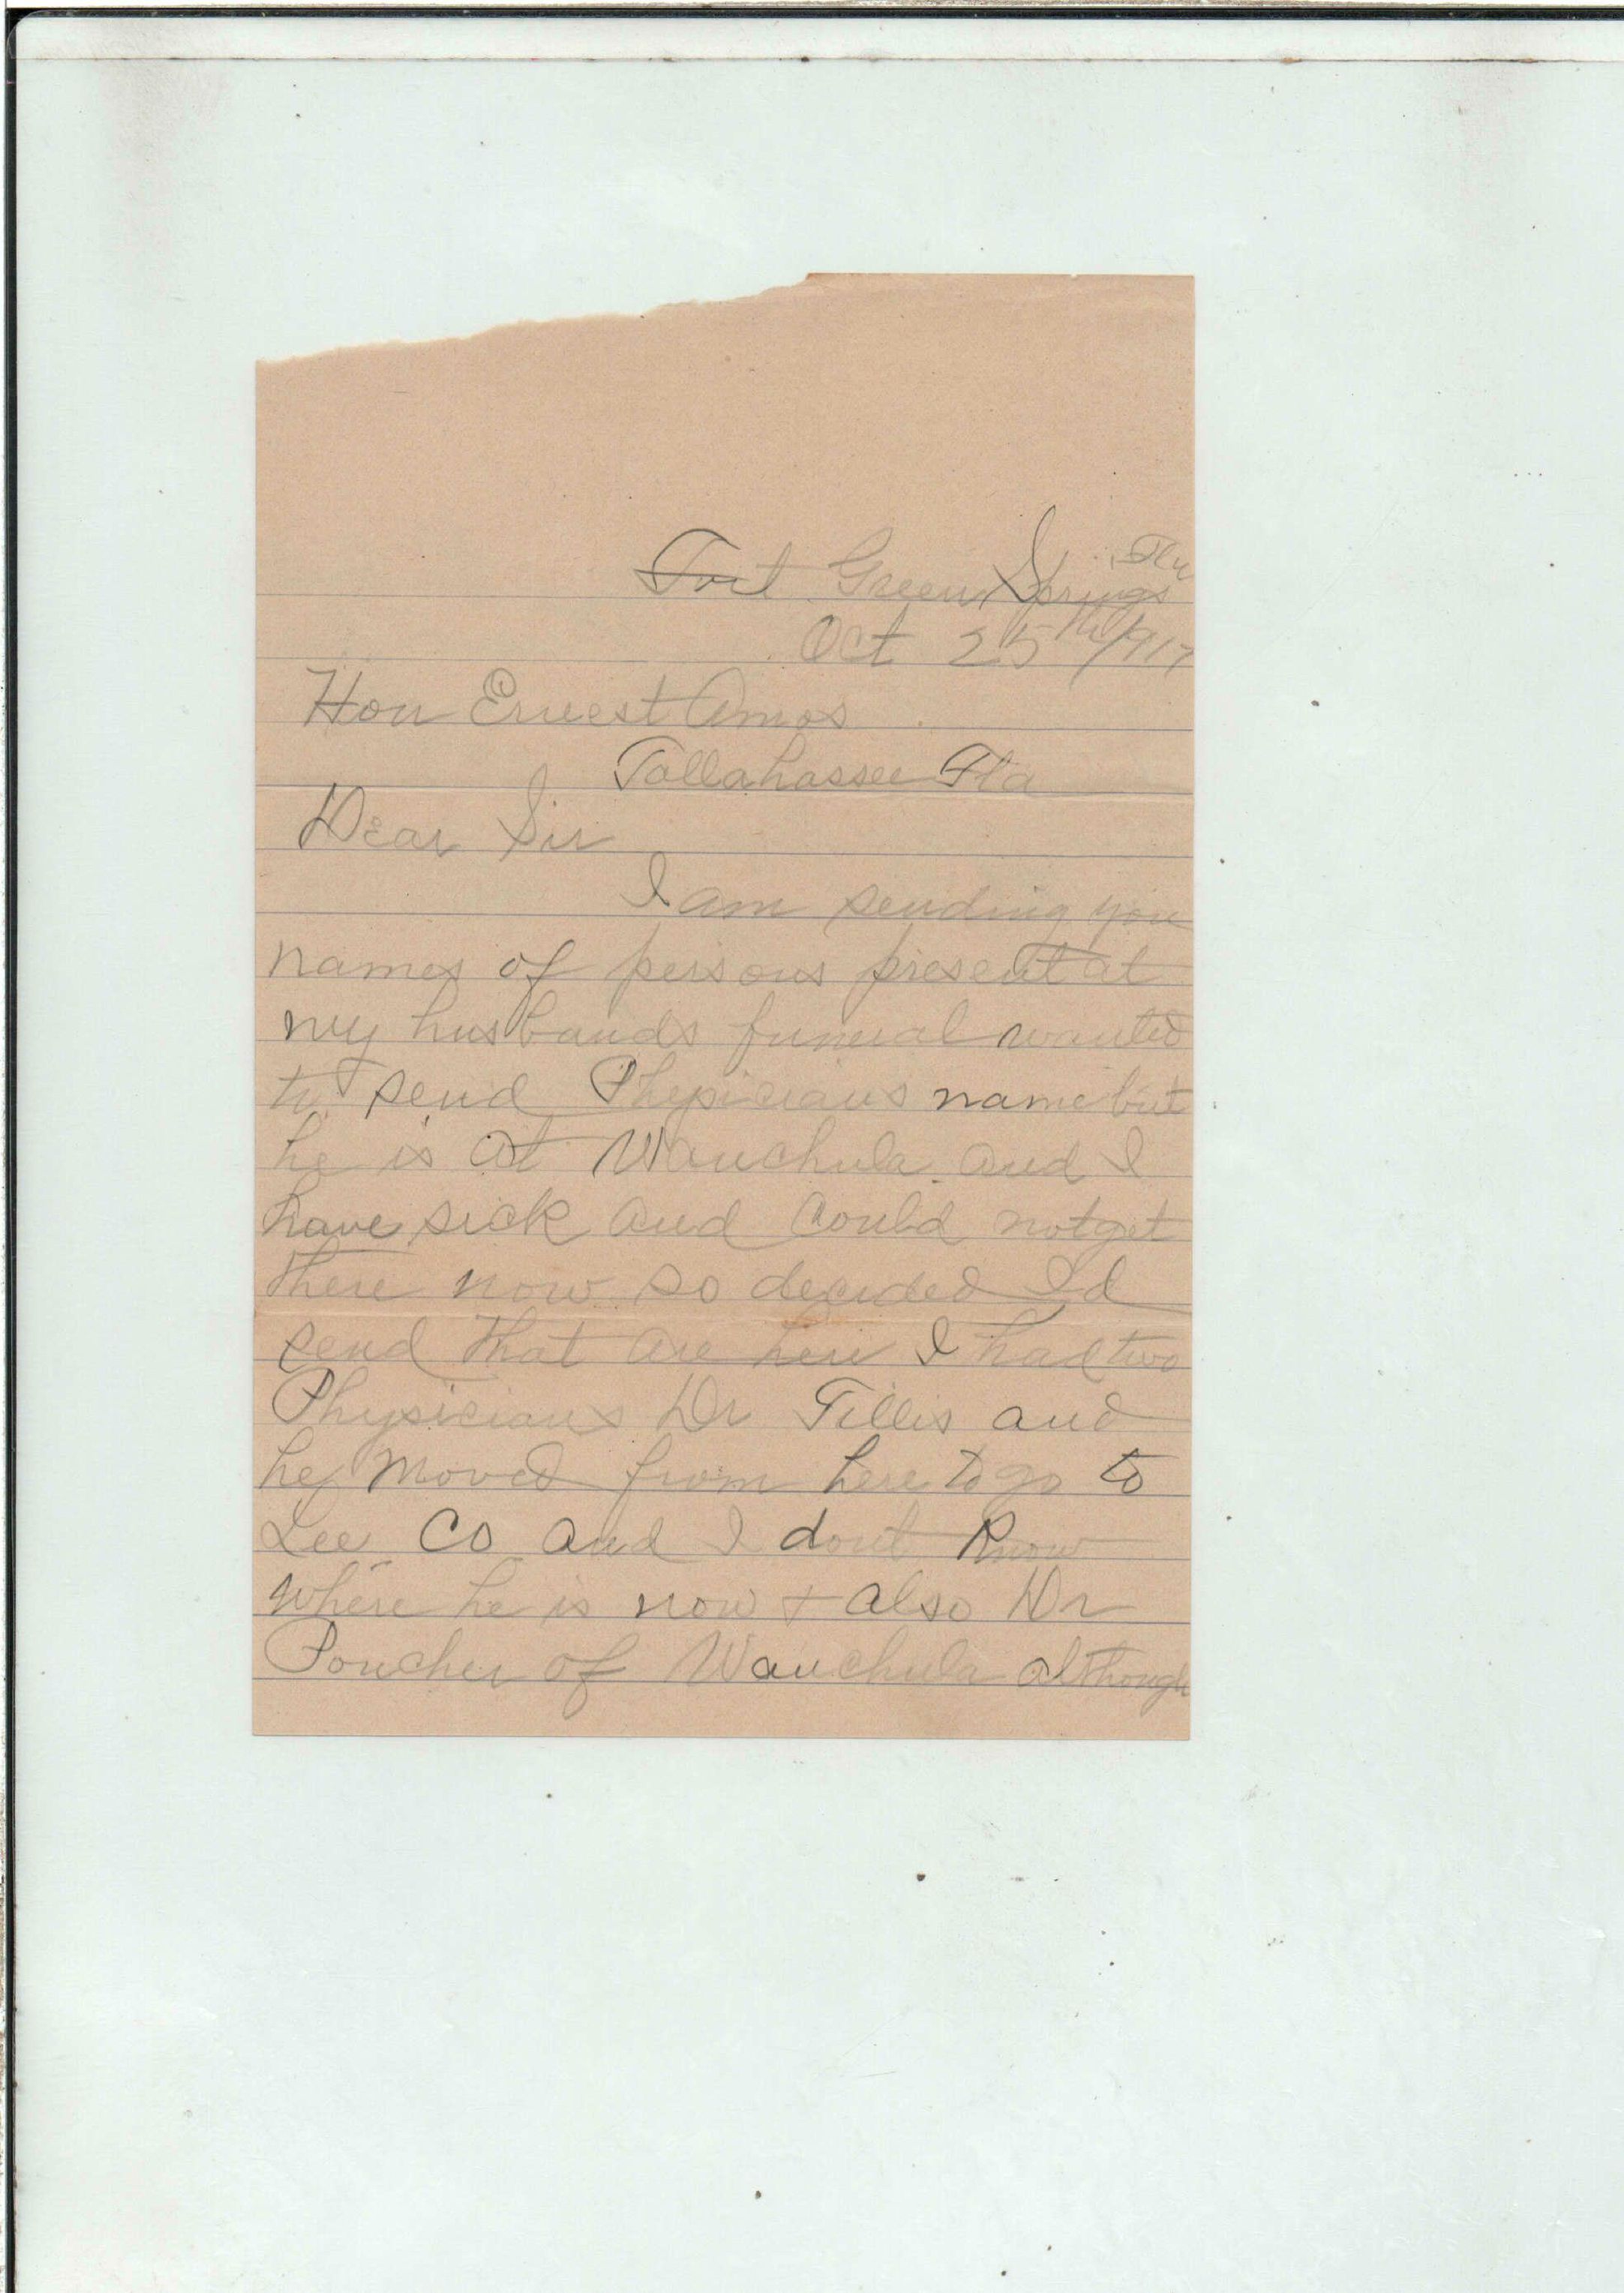 Fort Green Springs Fla
Oct 25th 1917
Hon Ernest Amos
Tallahassee Fla
Dear Sir
I am sending you
names of persons present at
my husbands funeral wanted
to send Physicians name but
he is at Wauchula and I
have sick and could not get
there now so decided Id
send that are here I had two
Physicians Dr Tillis and
he moved from here to go to
Lee Co and I dont know
where he is now + also Dr
Poucher of Wauchula although